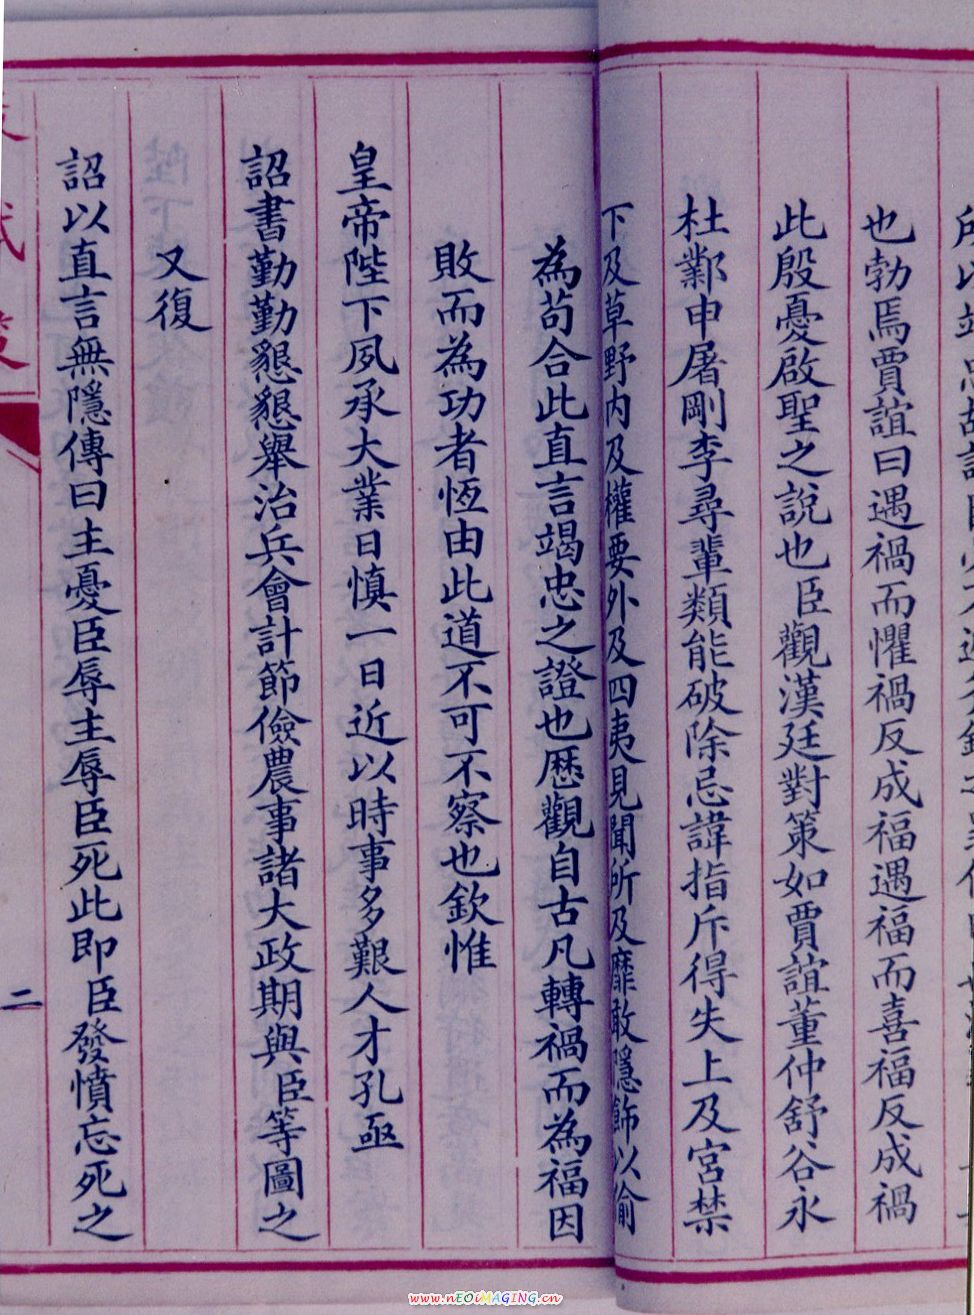 也勃焉賈誼曰遇禍而懼禍反成福遇福而喜福反成禍
此殷憂啟聖之說也臣觀漢廷對策如賈誼董仲舒谷永
杜鄴申屠剛李尋輩類能破除忌諱指斥得失上及宮禁
下及草野內及權要外及四夷見聞所及靡敢隱飾以偷
為苟合此直言竭忠之證也歷觀自古凡轉禍而為福因
敗而為功者恆由此道不可不察也欽惟
皇帝陛下夙承大業日慎一日近以時事多艱人才孔亟
詔書勤勤懇懇舉治兵會計節儉農事諸大政期與臣等圖之
又復
詔以直言無隱傳曰主憂臣辱主辱臣死此即臣發憤忘死之
二
www.nEOiMAGING.cn